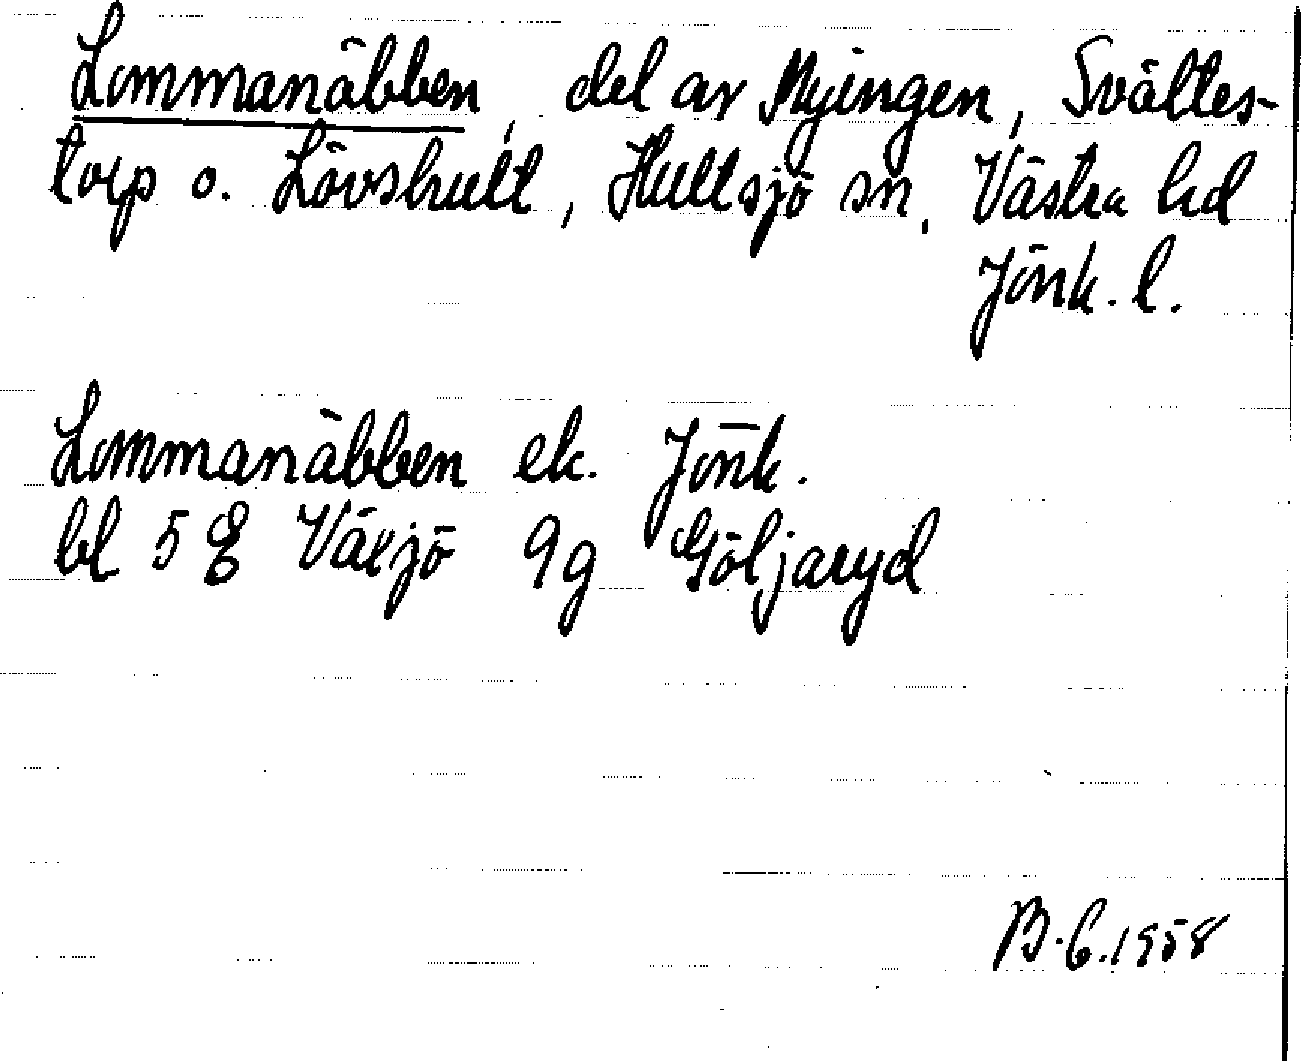 Lommanäbben, del av Myingen, Svältes-
torp o. Lövshult, Hultsjö sn, Västra hd
Jönk. l.
Lommanäbben ek. Jönk.
bl 5 E Växjö 9g Göljaryd
B.G.1958